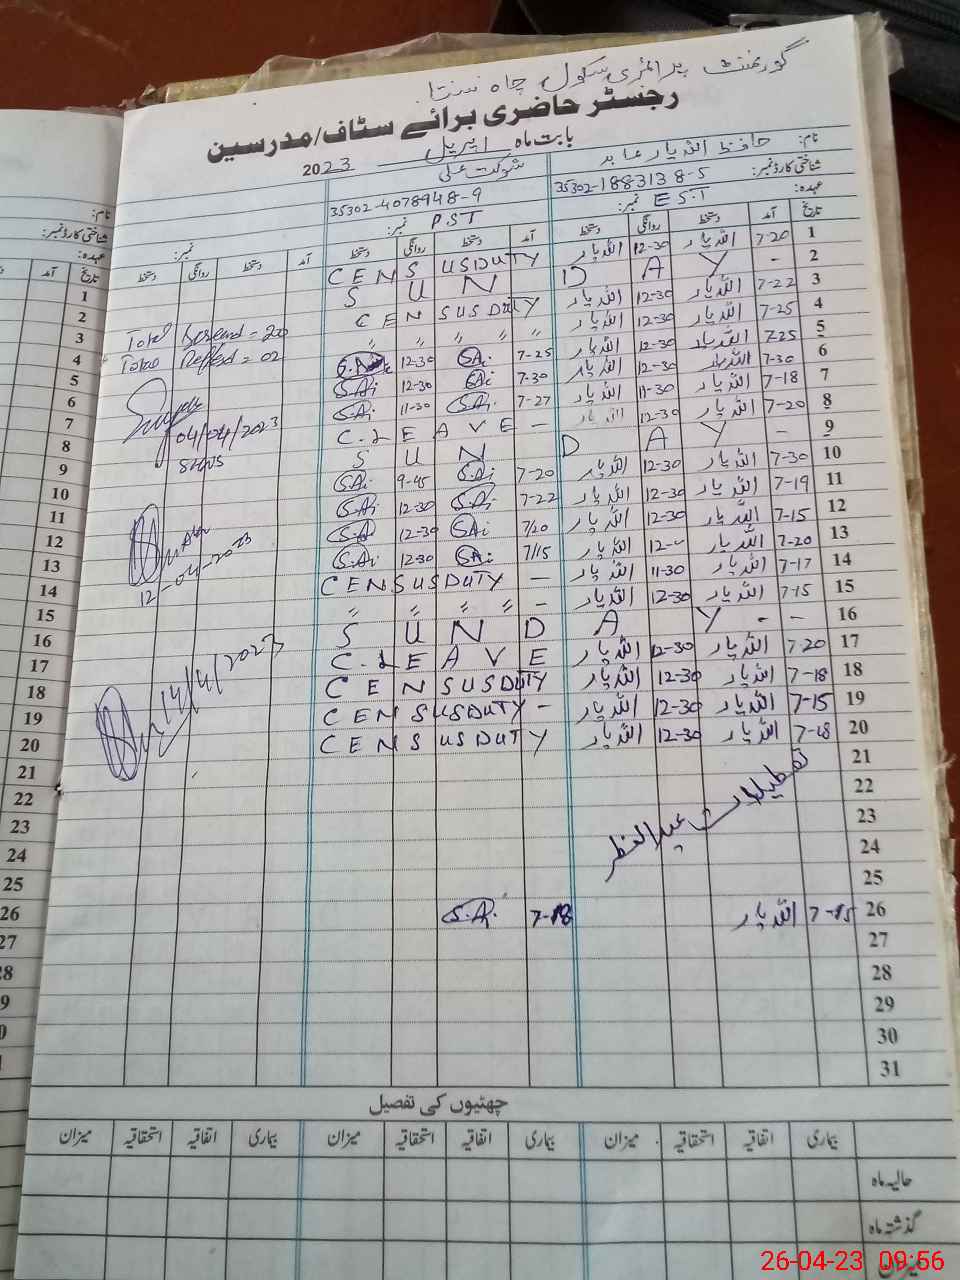 گورنمنٹ پرائمری سکول چاہ نستا
رجسٹر حاضری برائے سٹاف/مدرسین
بابت ماہ اپریل 2023
نام: حافظ اللہ یار عابد شوکت علی
شناختی کارڈ نمبر: 35302-1883138-5 35302-4078948-9
عہدہ: EST نمبر: P.ST نمبر: نمبر:
تاریخ آمد دستخط روانگی دستخط آمد دستخط روانگی دستخط آمد دستخط روانگی دستخط
1 7-20 اللہ یار 12-30 اللہ یار CENSUSDUTY
2 SUNDAY -
3 7-22 اللہ یار 12-30 اللہ یار CENSUSDUTY
4 7-25 اللہ یار 12-30 اللہ یار 〃 〃 〃 〃
5 7-25 اللہ یار 12-30 اللہ یار 7-25 S.Ai 12-30
6 7-30 اللہ یار 12-30 اللہ یار 7-30 S.Ai 12-30 S.Ai
7 7-18 اللہ یار 11-30 اللہ یار 7-27 S.Ai 11-30 S.Ai
8 7-20 اللہ یار 12-30 اللہ یار C.LEAVE -
9 SUNDAY -
10 7-30 اللہ یار 12-30 اللہ یار 7-20 S.Ai 9-45 S.Ai
11 7-19 اللہ یار 12-30 اللہ یار 7-22 S.Ai 12-30 S.Ai
12 7-15 اللہ یار 12-30 اللہ یار 7/20 S.Ai 12-30 S.Ai
13 7-20 اللہ یار 12-- اللہ یار 7/15 S.Ai 12-30 S.Ai
14 7-17 اللہ یار 11-30 اللہ یار CENSUSDUTY -
15 7-15 اللہ یار 12-30 اللہ یار 〃 〃 〃 〃 -
16 SUNDAY - -
17 7-20 اللہ یار 12-30 اللہ یار C.LEAVE
18 7-18 اللہ یار 12-30 اللہ یار CENSUSDUTY
19 7-15 اللہ یار 12-30 اللہ یار CENSUSDUTY -
20 7-18 اللہ یار 12-30 اللہ یار CENSUSDUTY
21
22
23 تعطیلات عیدالفطر
24
25
26 7-15 اللہ یار 7-18 S.A.
27
28
29
30
31
Total = 20
Total = 02
04/04/2023
12-04-2023
14/4/2023
نام:
شناختی کارڈ نمبر:
عہدہ:
تاریخ آمد
1
2
3
4
5
6
7
8
9
10
11
12
13
14
15
16
17
18
19
20
21
22
23
24
25
26
27
چھٹیوں کی تفصیل
بیماری اتفاقیہ استحقاقیہ میزان بیماری اتفاقیہ استحقاقیہ میزان بیماری اتفاقیہ استحقاقیہ میزان
حالیہ ماہ
گذشتہ ماہ
میزان
26-04-23 09:56